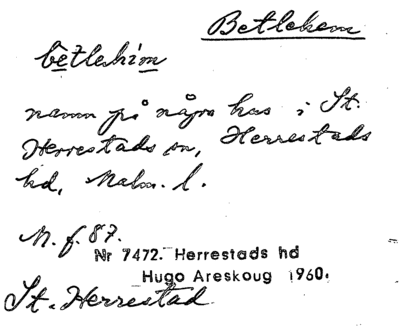 Betlehem
betlehim
namn på några hus i St.
Herrestads sn, Herrestads
hd, Malm. l.
M. f. 87.
Nr 7472. Herrestads hd
Hugo Areskoug 1960.
St. Herrestad